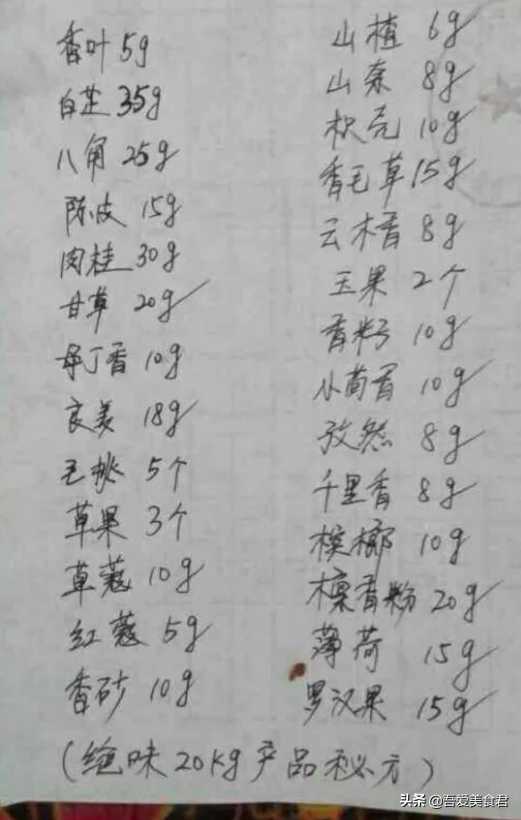 香叶 5g
白芷 35g
八角 25g
陈皮 15g
肉桂 30g
甘草 20g
母丁香 10g
良姜 18g
毛桃 5个
草果 3个
草蔻 10g
红蔻 5g
香砂 10g
山楂 6g
山奈 8g
枳壳 10g
香毛草 15g
云木香 8g
玉果 2个
香籽 10g
小茴香 10g
孜然 8g
千里香 8g
槟榔 10g
檀香粉 20g
薄荷 15g
罗汉果 15g
(绝味20kg产品秘方)
头条 @吾爱美食君